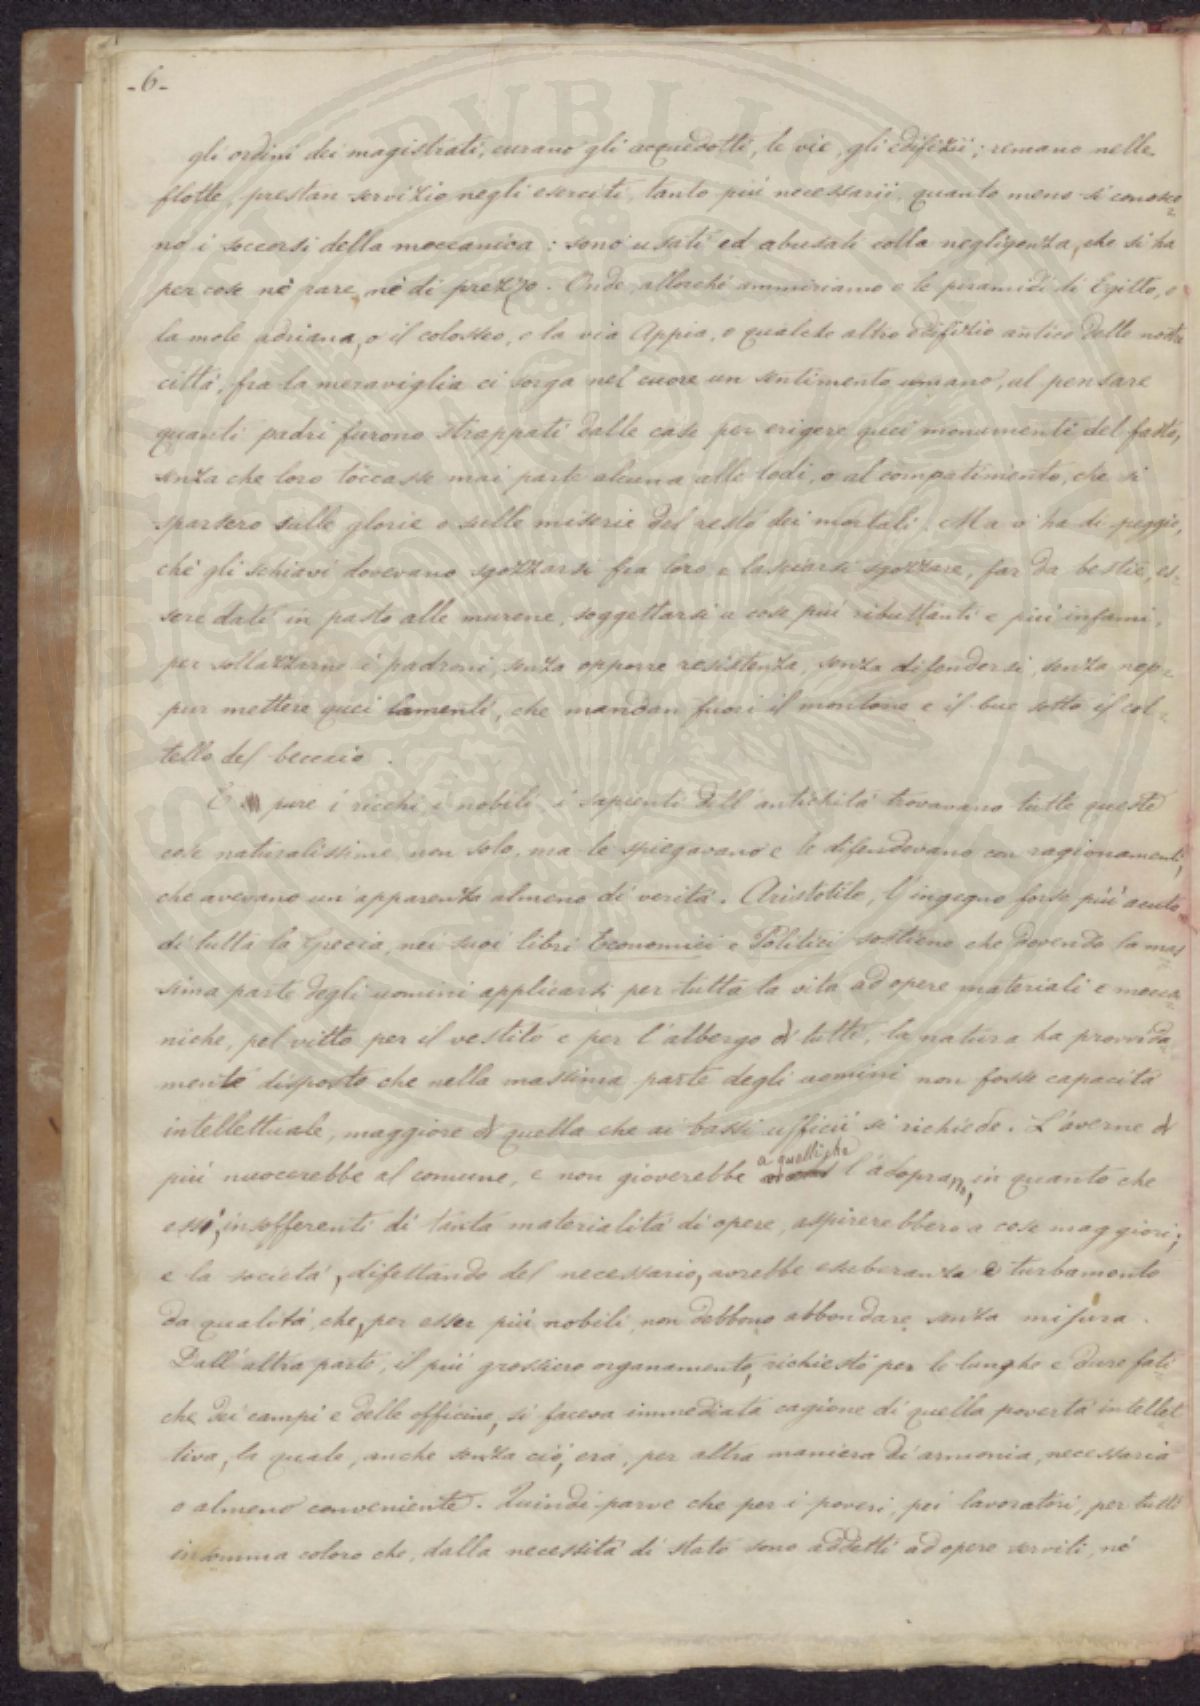 -6-
gli ordini dei magistrati, curano gli acquedotti, le vie, gli edifizii; remano nelle
flotte, prestan servizio negli eserciti, tanto più necessarii, quanto meno si conosco=
no i soccorsi della meccanica: sono usati ed abusati colla negligenza, che si ha
per cose nè rare, nè di prezzo. Onde, allorchè ammiriamo o le piramidi di Egitto, o
la mole adriana, o il colosseo, o la via Appia, o qualche altro edifizio antico delle nostre
città, fra la meraviglia ci sorga nel cuore un sentimento umano, al pensare
quanti padri furono strappati dalle case per erigere quei monumenti del fasto,
senza che loro toccasse mai parte alcuna alle lodi, o al compatimento, che si
sparsero sulle glorie o sulle miserie del resto dei mortali. Ma v'ha di peggio,
chè gli schiavi dovevano sgozzarsi fra loro e lasciarsi sgozzare, far da bestie, es=
sere dati in pasto alle murene, soggettarsi a cose più ributtanti e più infami,
per sollazzarne i padroni, senza opporre resistenza, senza difendersi, senza nep=
pur mettere quei lamenti, che mandan fuori il montone e il bue sotto il col=
tello del beccaio.
E pure i ricchi i nobili i sapienti dell'antichità trovavano tutte queste
cose naturalissime non solo, ma le spiegavano e le difendevano con ragionamenti,
che avevano un'apparenza almeno di verità. Aristotile, l'ingegno forse più acuto
di tutta la Grecia, nei suoi libri Economici e Politici sostiene che dovendo la mas
sima parte degli uomini applicarsi per tutta la vita ad opere materiali e mecca=
niche, pel vitto per il vestito e per l'albergo di tutti, la natura ha provvida=
mente disposto che nella massima parte degli uomini non fosse capacità
intellettuale, maggiore di quella che ai bassi ufficii si richiede. L'averne di
più nuocerebbe al comune, e non gioverebbe a quelli che l'adoprano, in quanto che
essi, insofferenti di tanta materialità di opere, aspirerebbero a cose maggiori;
e la società, difettando del necessario, avrebbe esuberanza e turbamento
da qualità, che, per esser più nobili, non debbono abbondare senza misura.
Dall'altra parte, il più grossiero organamento, richiesto per le lunghe e dure fati
che dei campi e delle officine, si faceva immediata cagione di quella povertà intellet=
tiva, la quale, anche senza ciò, era, per altra maniera di armonia, necessaria
o almeno conveniente. Quindi parve che per i poveri, pei lavoratori, per tutti
insomma coloro che, dalla necessità di stato sono addetti ad opere servili, nè